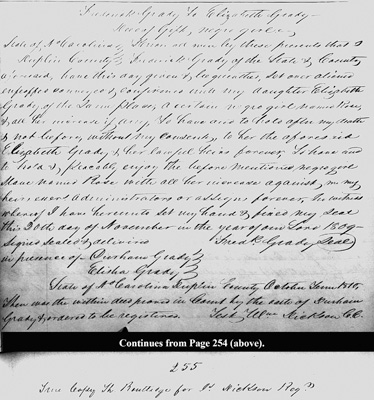 Frederick Grady to Elizabeth Grady
Deed of Gift, negro girl
State of No Carolina } Know all men by these presents that I
Duplin County } Frederick Grady of the State & County
aforesaid, have this day given & bequeathed, set over aliened
enfeoffed conveyed & confirmed unto my daughter Elizabeth
Grady of the same place, a certain negro girl named Rose,
& all her increase if any To have and to hold after my death
& not before, without my consent, to her the aforesaid
Elizabeth Grady & her lawful heirs forever, To have and
to hold & peaceably enjoy the before mentioned negro girl
Slave named Rose with all her increase against me my
heirs execrs Administrators or assigns forever, In witness
whereof I have hereunto set my hand & fixed my seal
this 20th day of November in the year of our Lord 1809
Signed sealed & delivered Fredk Grady Seal
in presence of Durham Grady }
Elisha Grady }
State of No Carolina Duplin County October Term
Then was the within deed proved in Court by the oath of Durham
Grady & ordered to be registered. Test Wm Dickson CC.
Continues from Page 254 (above).
255
True Copy Th Routledge for Dickson Regr